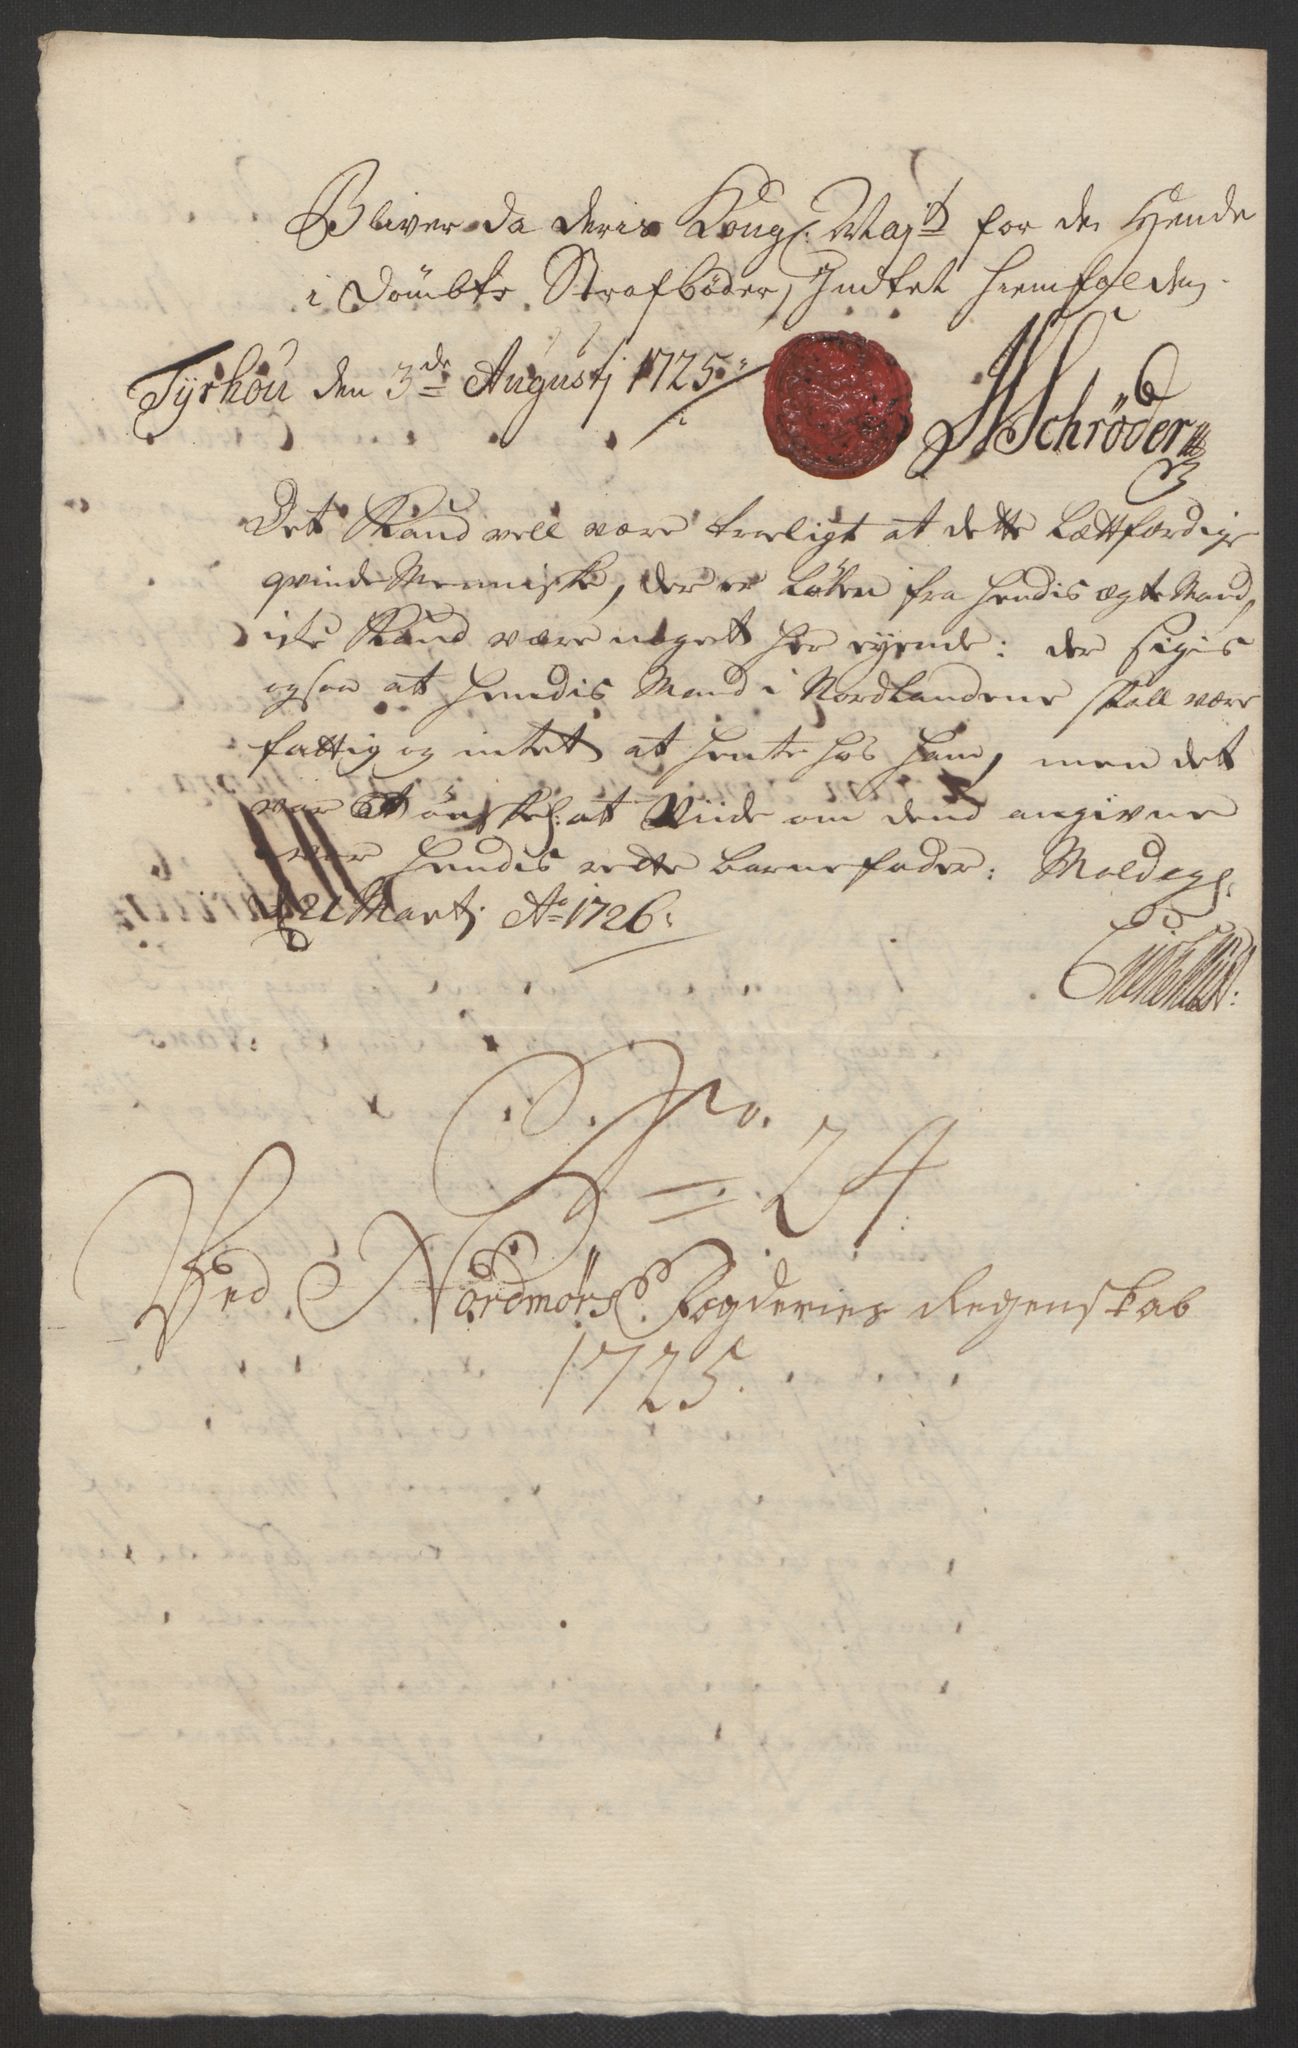 Bliver da deris Kongl: Maj:ts for de Hende
i dömbte Strafbøder, Indtet hiemfalden.
Tÿrhou den 3de Augustj 1725
Schrøder
Det Kand vell være troeligt at dette Lættfærdige
qvinde Menniske, der er Løben fra hendis ægte Mand,
icke Kand være noget her eyende: der sigis
ogsaa at hendis Mand i Nordlandene skall være
fattig og intet at hente hos ham, men det
var at ønske at Viide om dend angivne
var hendis rette barnefader: Moldegl.
21 Martj Ao 1726
No. 24
Ved Nordmørs Fogderies Regenskab
1725.